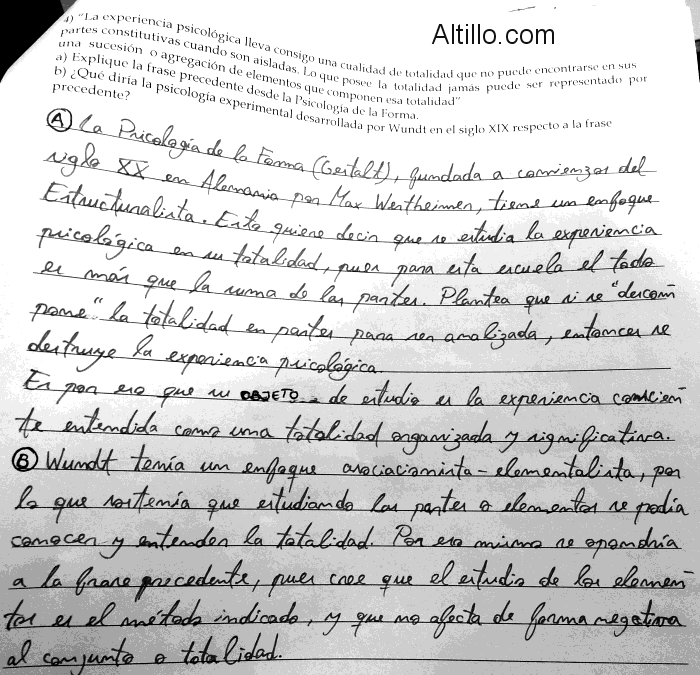 Altillo.com
4) "La experiencia psicológica lleva consigo una cualidad de totalidad que no puede encontrarse en sus
partes constitutivas cuando son aisladas. Lo que posee la totalidad jamás puede ser representado por
una sucesión o agregación de elementos que componen esa totalidad"
a) Explique la frase precedente desde la Psicología de la Forma.
b) ¿Qué diría la psicología experimental desarrollada por Wundt en el siglo XIX respecto a la frase
precedente?
A La Psicología de la Forma (Gestalt), fundada a comienzos del
siglo XX en Alemania por Max Wertheimer, tiene un enfoque
Estructuralista. Esto quiere decir que se estudia la experiencia
psicológica en su totalidad, pues para esta escuela el todo
es más que la suma de las partes. Plantea que si se "descom
pone" la totalidad en partes para ser analizada, entonces se
destruye la experiencia psicológica.
Es por eso que su OBJETO de estudio es la experiencia conscien
te entendida como una totalidad organizada y significativa.
B Wundt tenía un enfoque asociacionista-elementalista, por
lo que sostenía que estudiando las partes o elementos se podía
conocer y entender la totalidad. Por eso mismo se opondría
a la frase precedente, pues cree que el estudio de los elemen
tos es el método indicado, y que no afecta de forma negativa
al conjunto o totalidad.